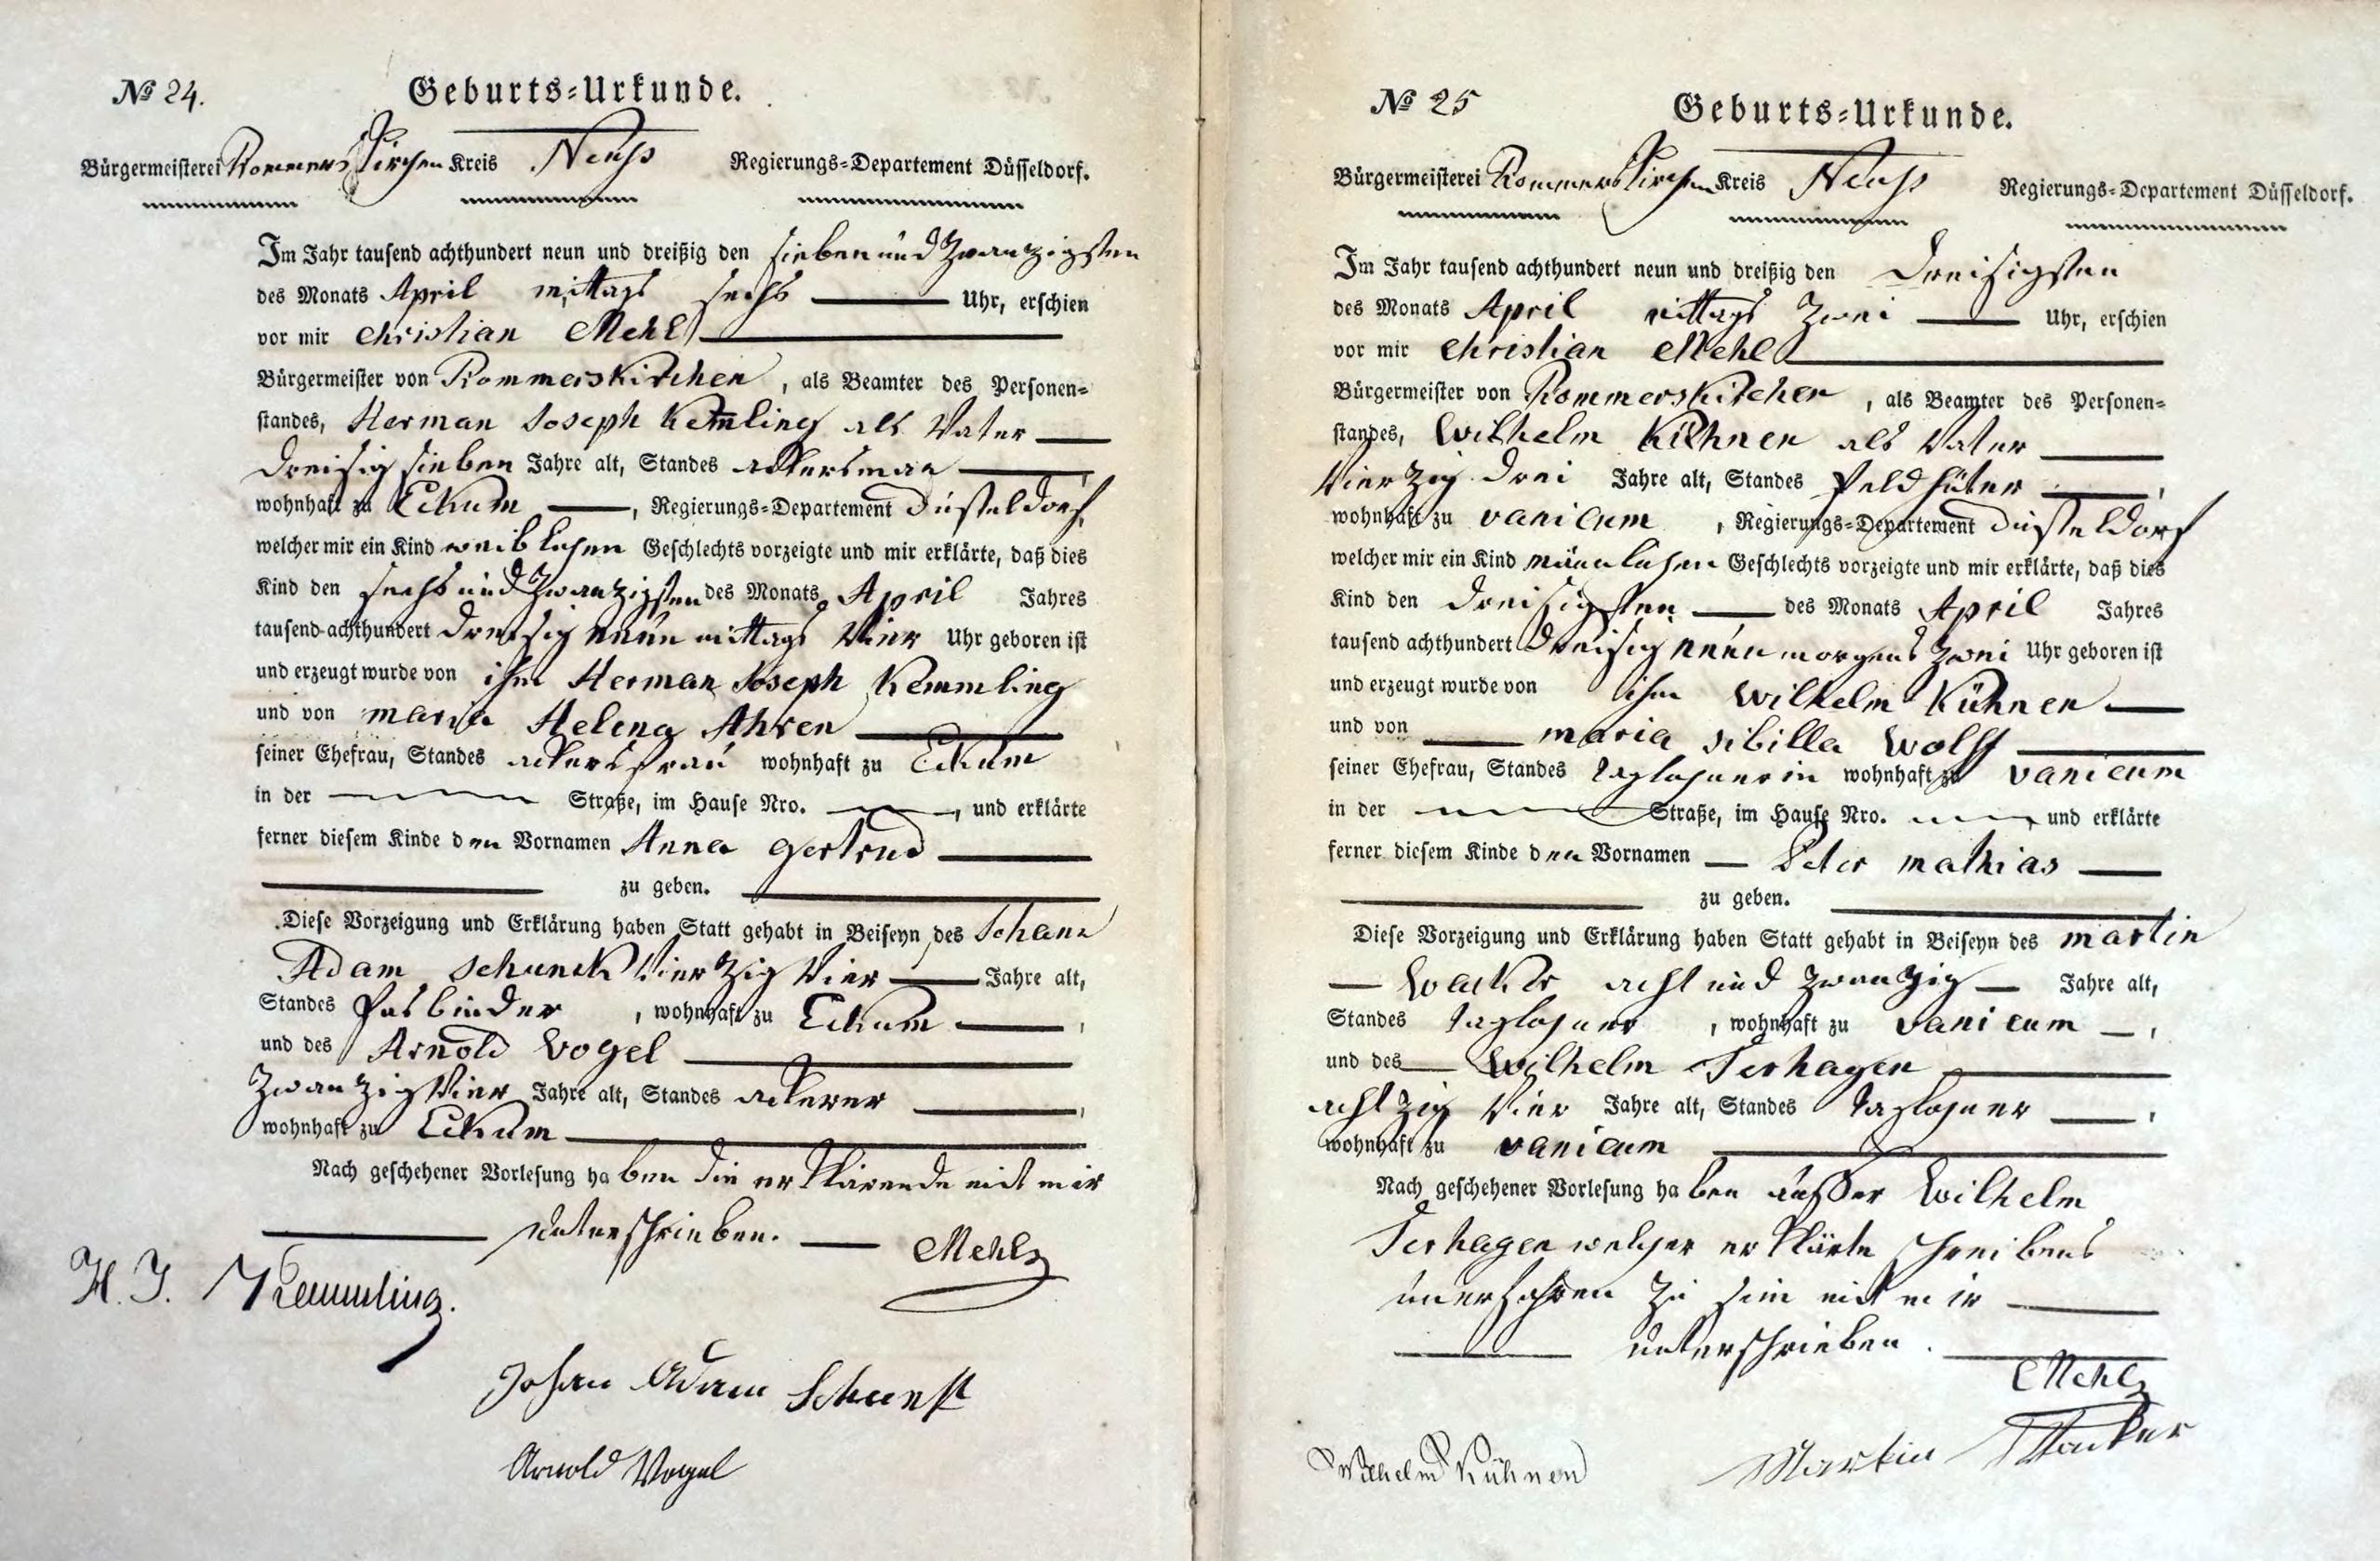 № 24.
Geburts-Urkunde.
Bürgermeisterei Rommerskirchen Kreis Neuß Regierungs-Departement Düsseldorf.
Im Jahr tausend achthundert neun und dreißig den siebenundzwanzigsten
des Monats April mittags sechs Uhr, erschien
vor mir Christian Mehl
Bürgermeister von Rommerskirchen, als Beamter des Personen-
standes, Herman Joseph Kemling als Vater
dreisig sieben Jahre alt, Standes ackersman
wohnhaft zu Eckum, Regierungs-Departement Düsseldorf,
welcher mir ein Kind weiblichen Geschlechts vorzeigte und mir erklärte, daß dies
Kind den sechsundzwanzigsten des Monats April Jahres
tausend achthundert dreisig neun mittags vier Uhr geboren ist
und erzeugt wurde von ihm Herman Joseph Kemmling
und von maria Helena Ahren
seiner Ehefrau, Standes ackersfrau wohnhaft zu Eckum
in der Straße, im Hause Nro. , und erklärte
ferner diesem Kinde den Vornamen Anna gertrud
zu geben.
Diese Vorzeigung und Erklärung haben Statt gehabt in Beiseyn des Johann
Adam Schunck vierzig vier Jahre alt,
Standes Fasbinder, wohnhaft zu Eckum,
und des Arnold Vogel
zwanzig vier Jahre alt, Standes ackerer,
wohnhaft zu Eckum
Nach geschehener Vorlesung haben die erklärende mit mir
unterschrieben. Mehl
H. J. Kemmling.
Johan Adam Schunk
Arnold Vogel
№ 25
Geburts-Urkunde.
Bürgermeisterei Rommerskirchen Kreis Neuß Regierungs-Departement Düsseldorf.
Im Jahr tausend achthundert neun und dreißig den dreisigsten
des Monats April mittags zwei Uhr, erschien
vor mir Christian Mehl
Bürgermeister von Rommerskirchen, als Beamter des Personen-
standes, Wilhelm Kühnen als Vater
vierzig drei Jahre alt, Standes Feldhüter,
wohnhaft zu vanicum, Regierungs-Departement Düsseldorf
welcher mir ein Kind mänlichen Geschlechts vorzeigte und mir erklärte, daß dies
Kind den dreisigsten des Monats April Jahres
tausend achthundert dreisig neun morgens zwei Uhr geboren ist
und erzeugt wurde von ihm Wilhelm Kühnen
und von maria sibilla Wolff
seiner Ehefrau, Standes taglohnerin wohnhaft zu vanicum
in der Straße, im Hause Nro. und erklärte
ferner diesem Kinde den Vornamen Peter mathias
zu geben.
Diese Vorzeigung und Erklärung haben Statt gehabt in Beiseyn des martin
Wacker acht und zwanzig Jahre alt,
Standes taglohner, wohnhaft zu vanicum,
und des Wilhelm Terhagen
achtzig vier Jahre alt, Standes taglohner,
wohnhaft zu vanicum
Nach geschehener Vorlesung haben ausser Wilhelm
Terhagen welcher erklärte schreibens
unerfahren zu sein mit mir
unterschrieben.
Mehl
Wilhelm Kühnen Martin Wacker